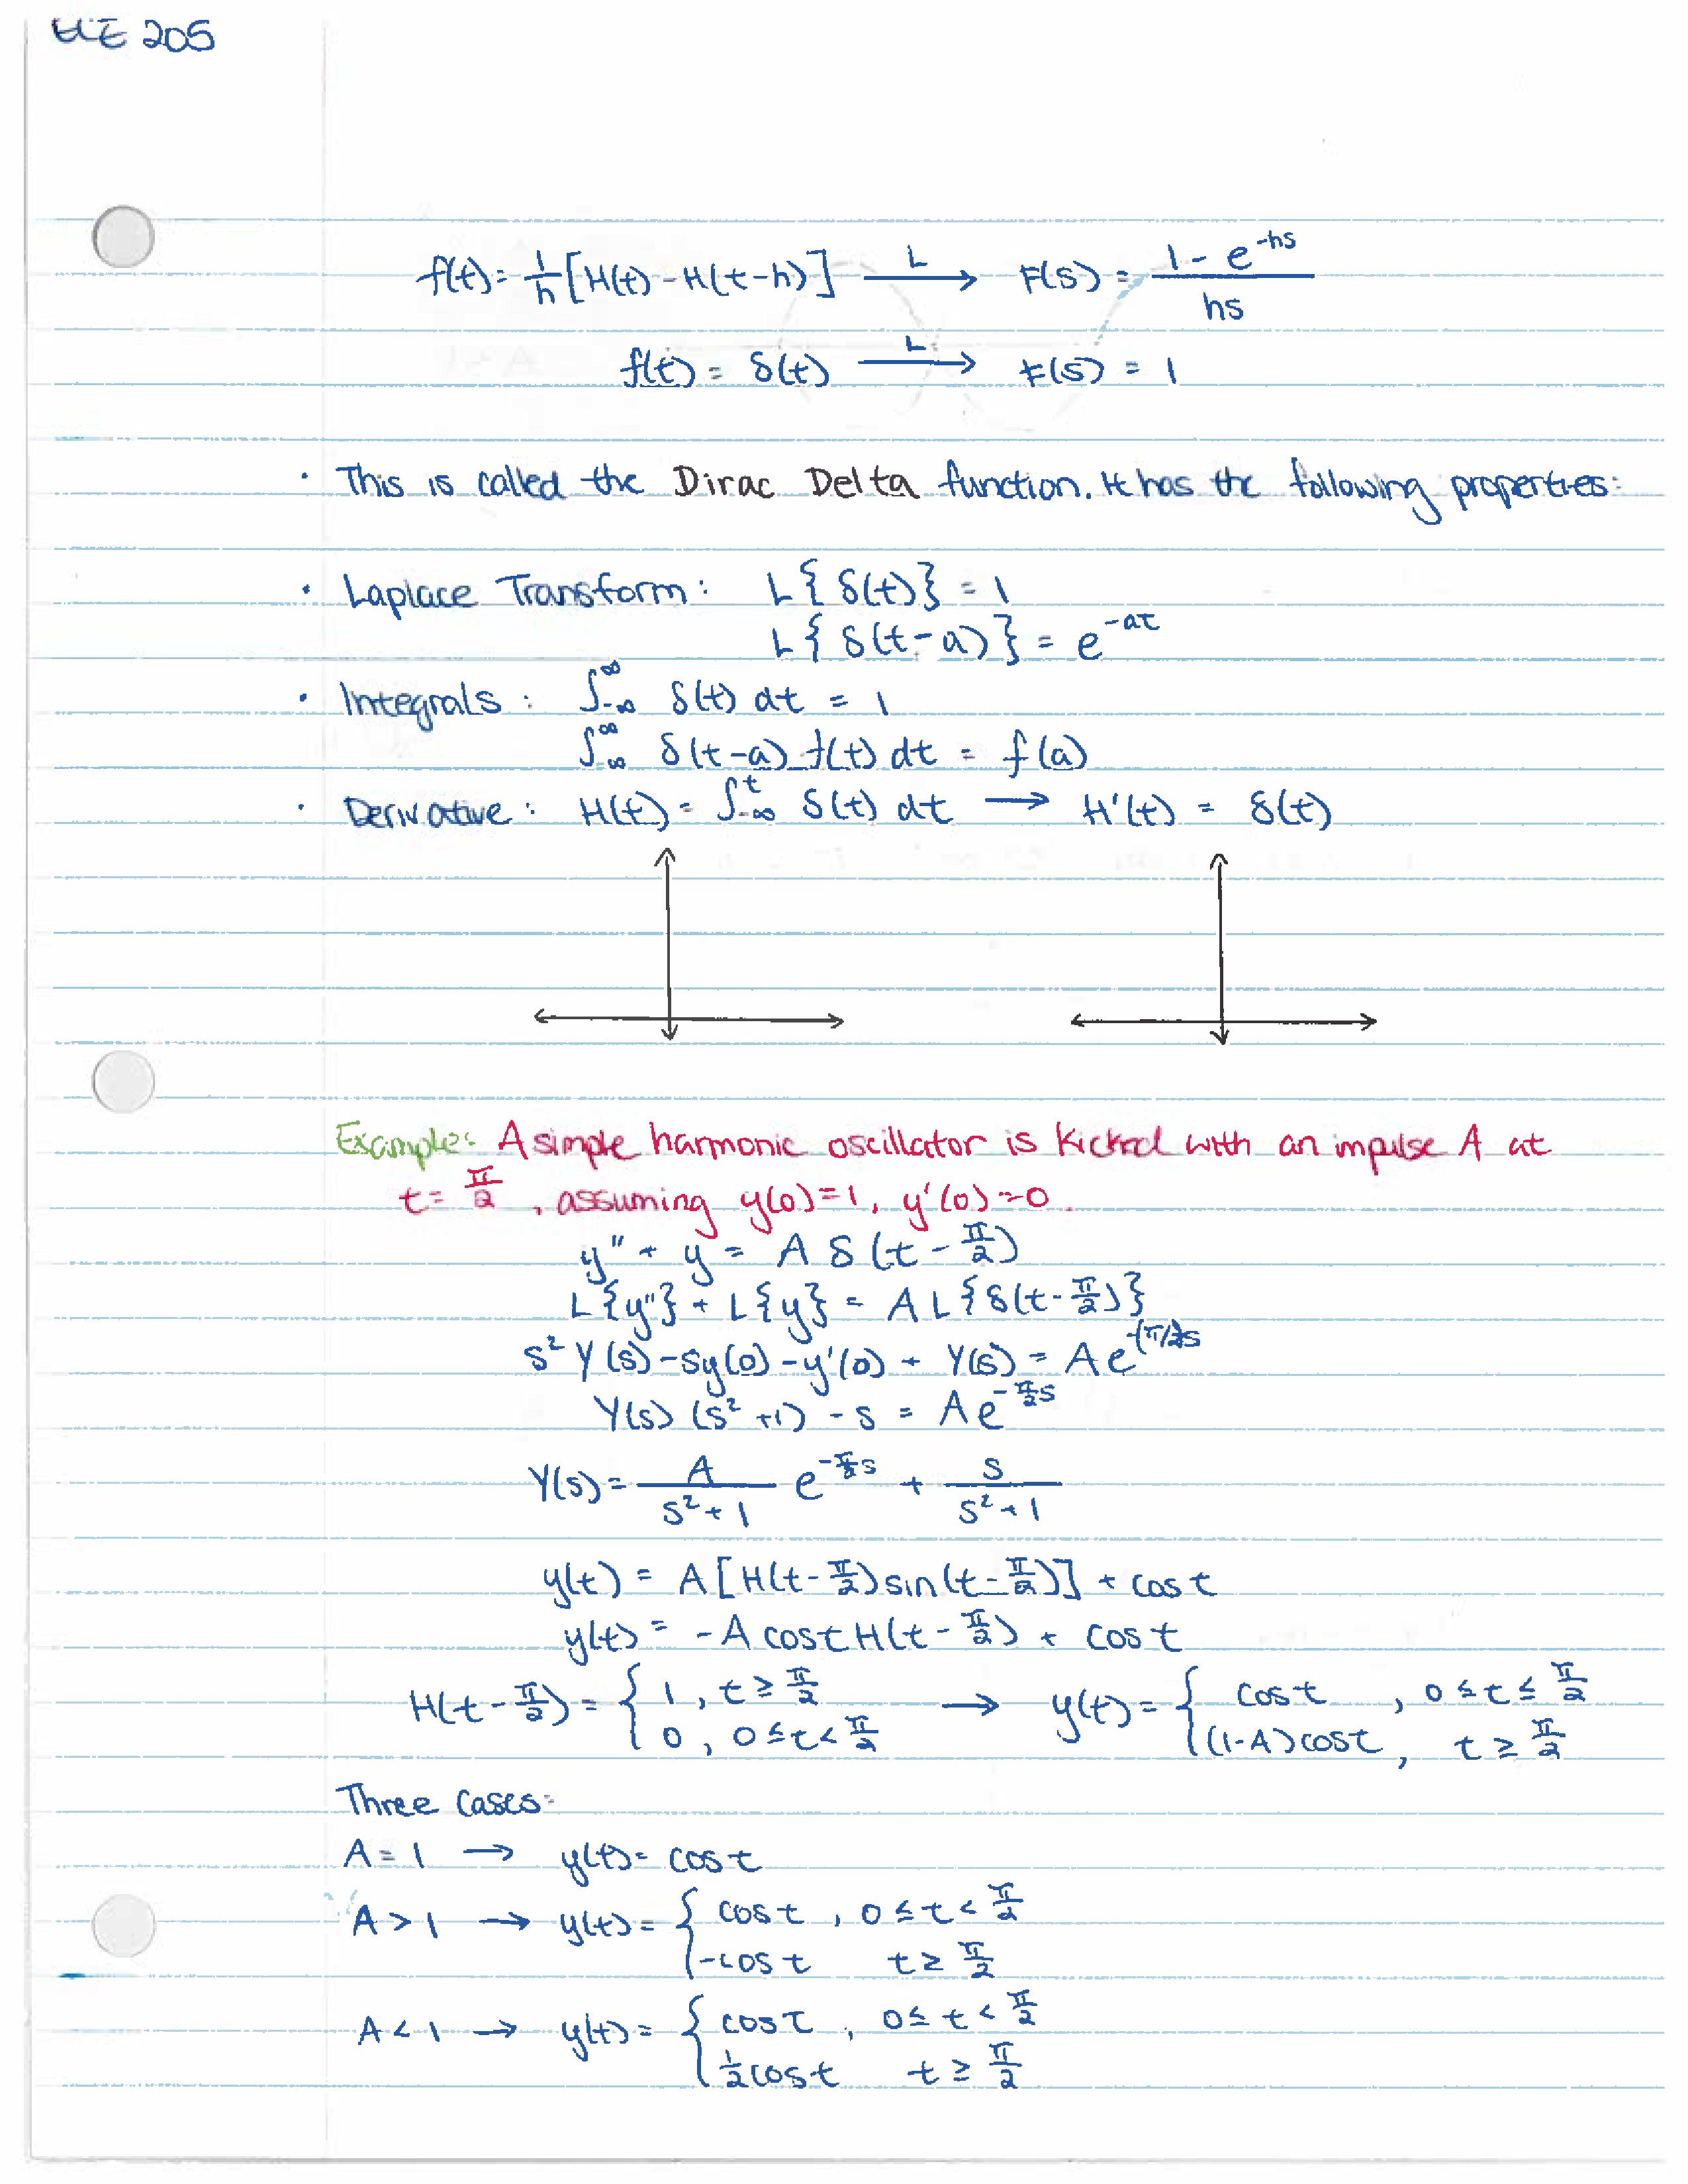 ECE 205
f(t) = 1/h [H(t) - H(t-h)] —L→ F(s) = (1 - e^-hs)/hs
f(t) = δ(t) —L→ F(s) = 1
· This is called the Dirac Delta function. It has the following properties:
· Laplace Transform: L{δ(t)} = 1
L{δ(t-a)} = e^-at
· Integrals: ∫_-∞^∞ δ(t) dt = 1
∫_-∞^∞ δ(t-a) f(t) dt = f(a)
· Derivative: H(t) = ∫_-∞^t δ(t) dt → H'(t) = δ(t)
Example: A simple harmonic oscillator is kicked with an impulse A at
t = π/2, assuming y(0)=1, y'(0)=0.
y'' + y = A δ(t - π/2)
L{y''} + L{y} = A L{δ(t - π/2)}
s² Y(s) - sy(0) - y'(0) + Y(s) = A e^-(π/2)s
Y(s) (s² + 1) - s = A e^-π/2 s
Y(s) = A/(s² + 1) e^-π/2 s + s/(s² + 1)
y(t) = A [H(t - π/2) sin(t - π/2)] + cos t
y(t) = -A cos t H(t - π/2) + cos t
H(t - π/2) = { 1, t ≥ π/2 ; 0, 0 ≤ t < π/2 → y(t) = { cos t, 0 ≤ t ≤ π/2 ; (1-A) cos t, t ≥ π/2
Three Cases:
A = 1 → y(t) = cos t
A > 1 → y(t) = { cos t, 0 ≤ t < π/2
-cos t t ≥ π/2
A < 1 → y(t) = { cos t, 0 ≤ t < π/2
1/2 cos t t ≥ π/2